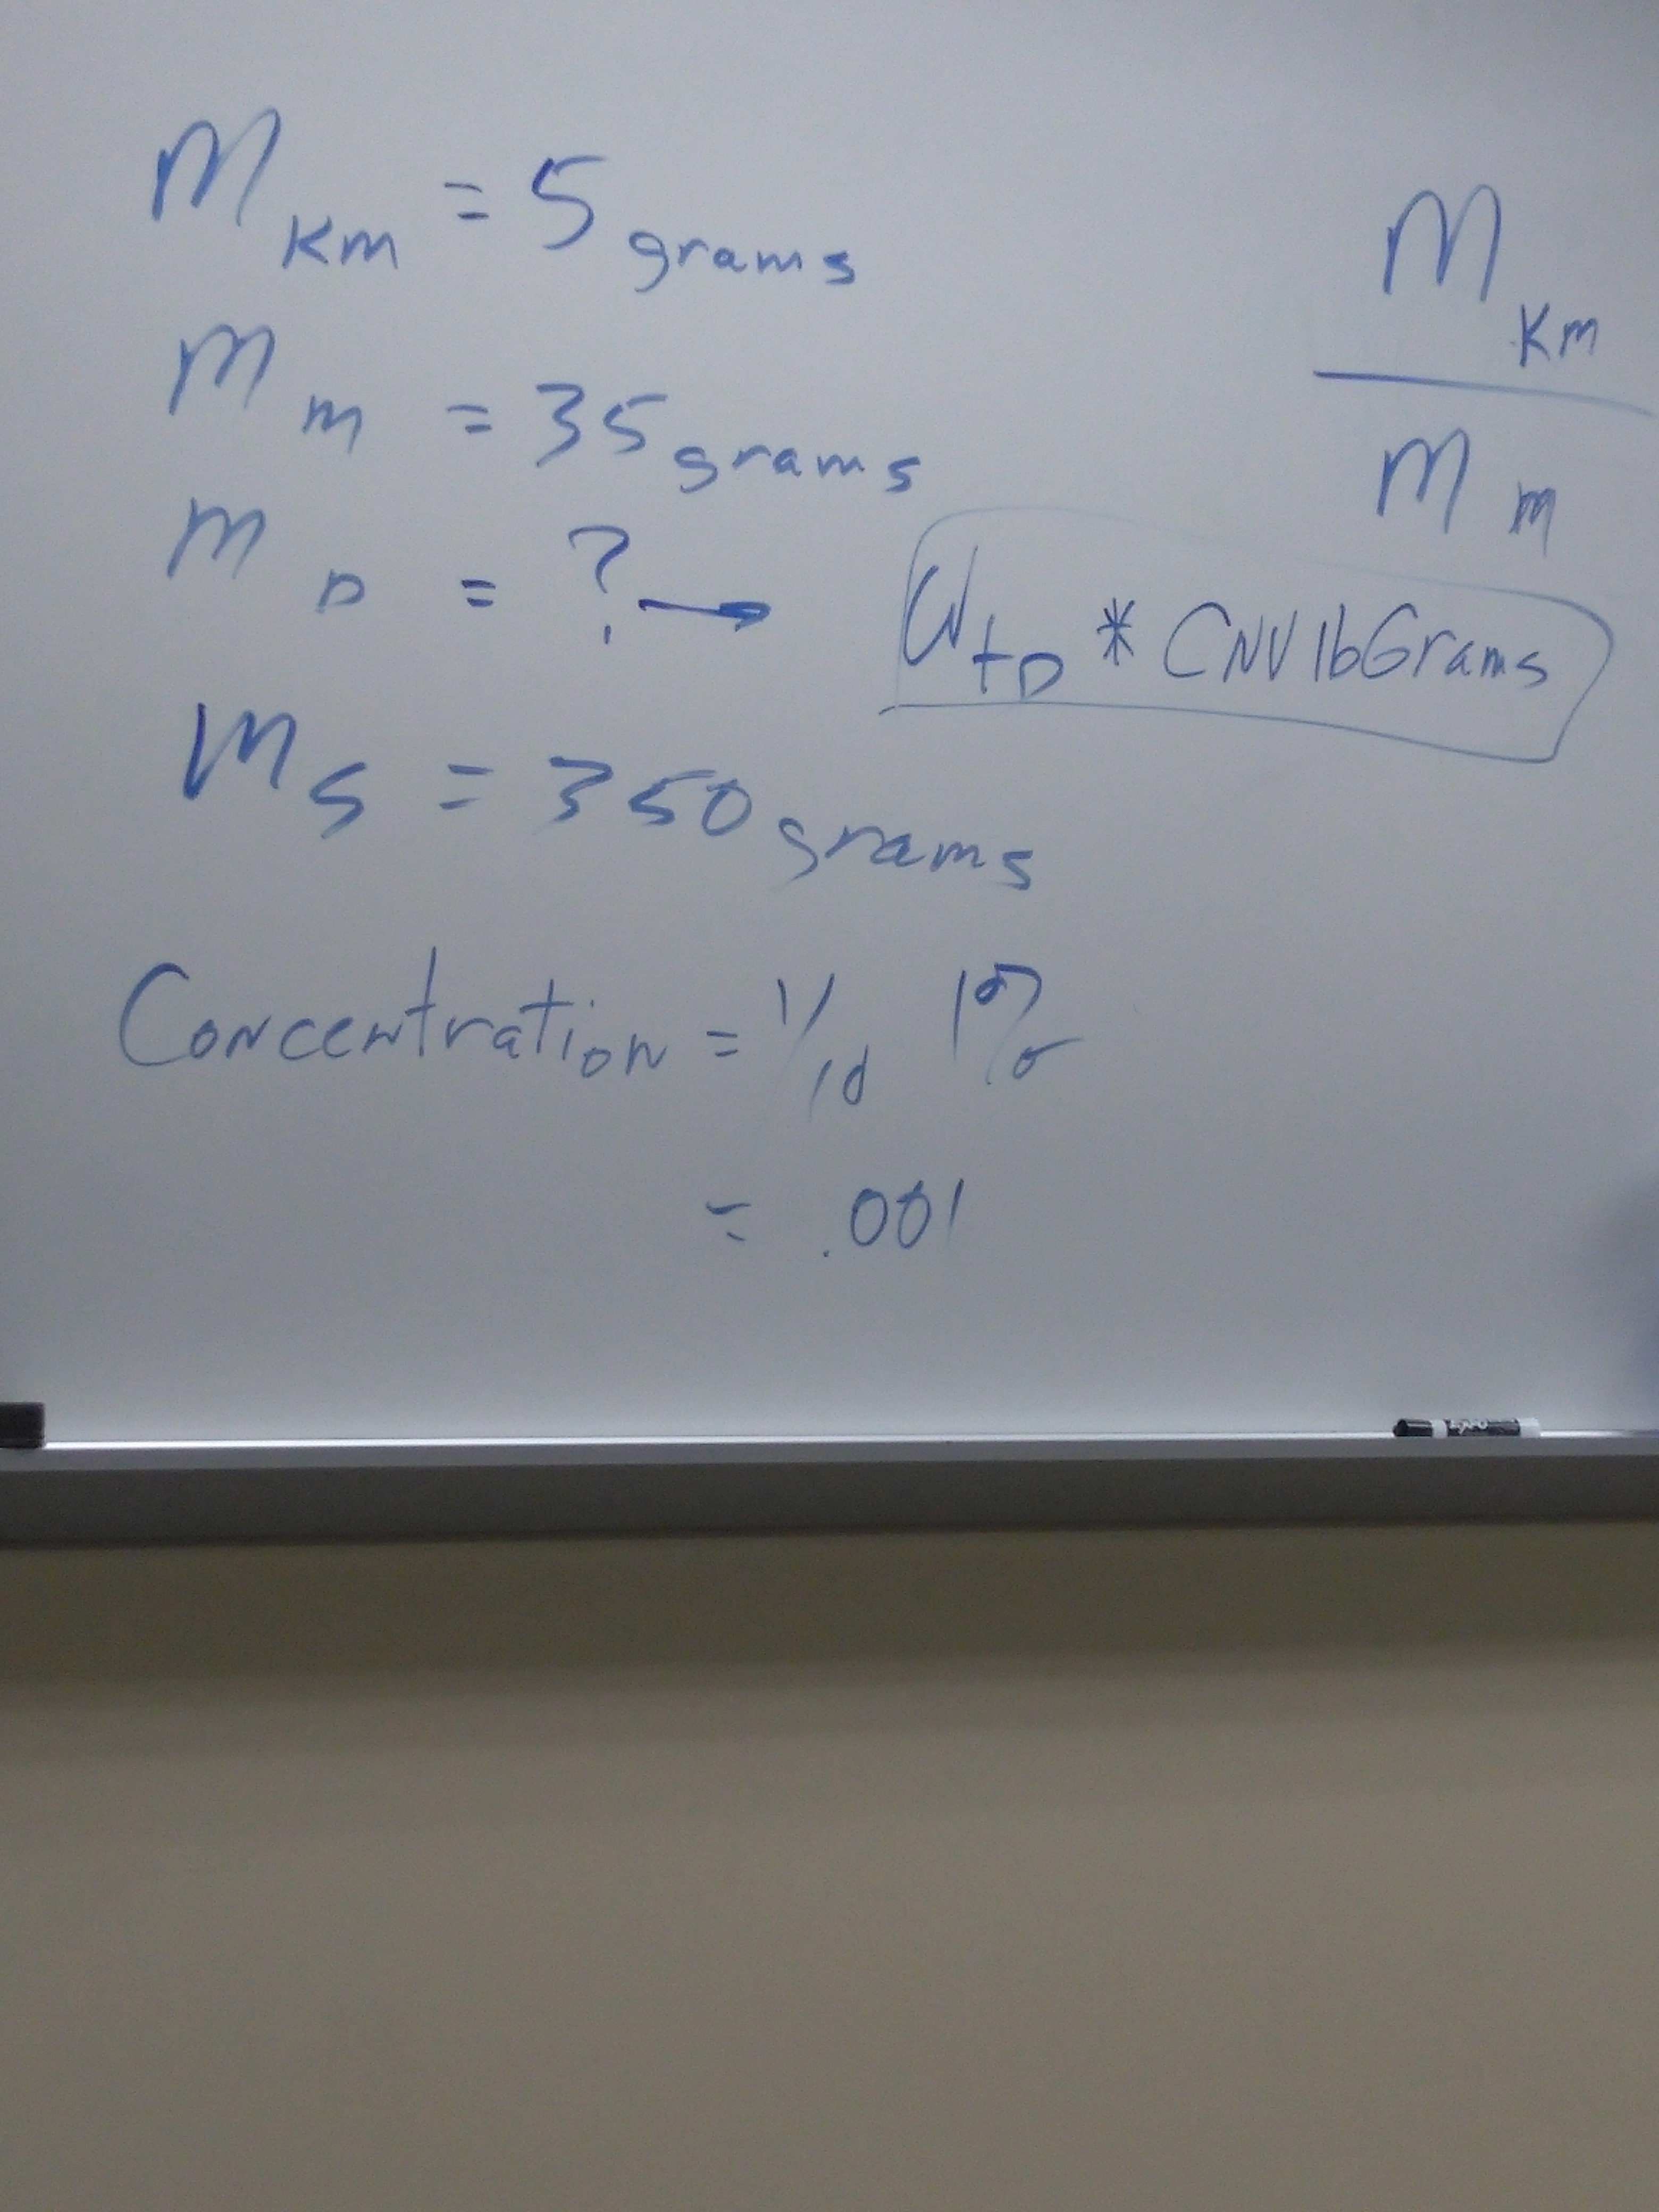 M Km = 5 grams
M m = 35 grams
M D = ? → WtD * CNVlbGrams
M S = 350 grams
Concentration = 1/10 1%
= .001
M Km
M m
EXPO